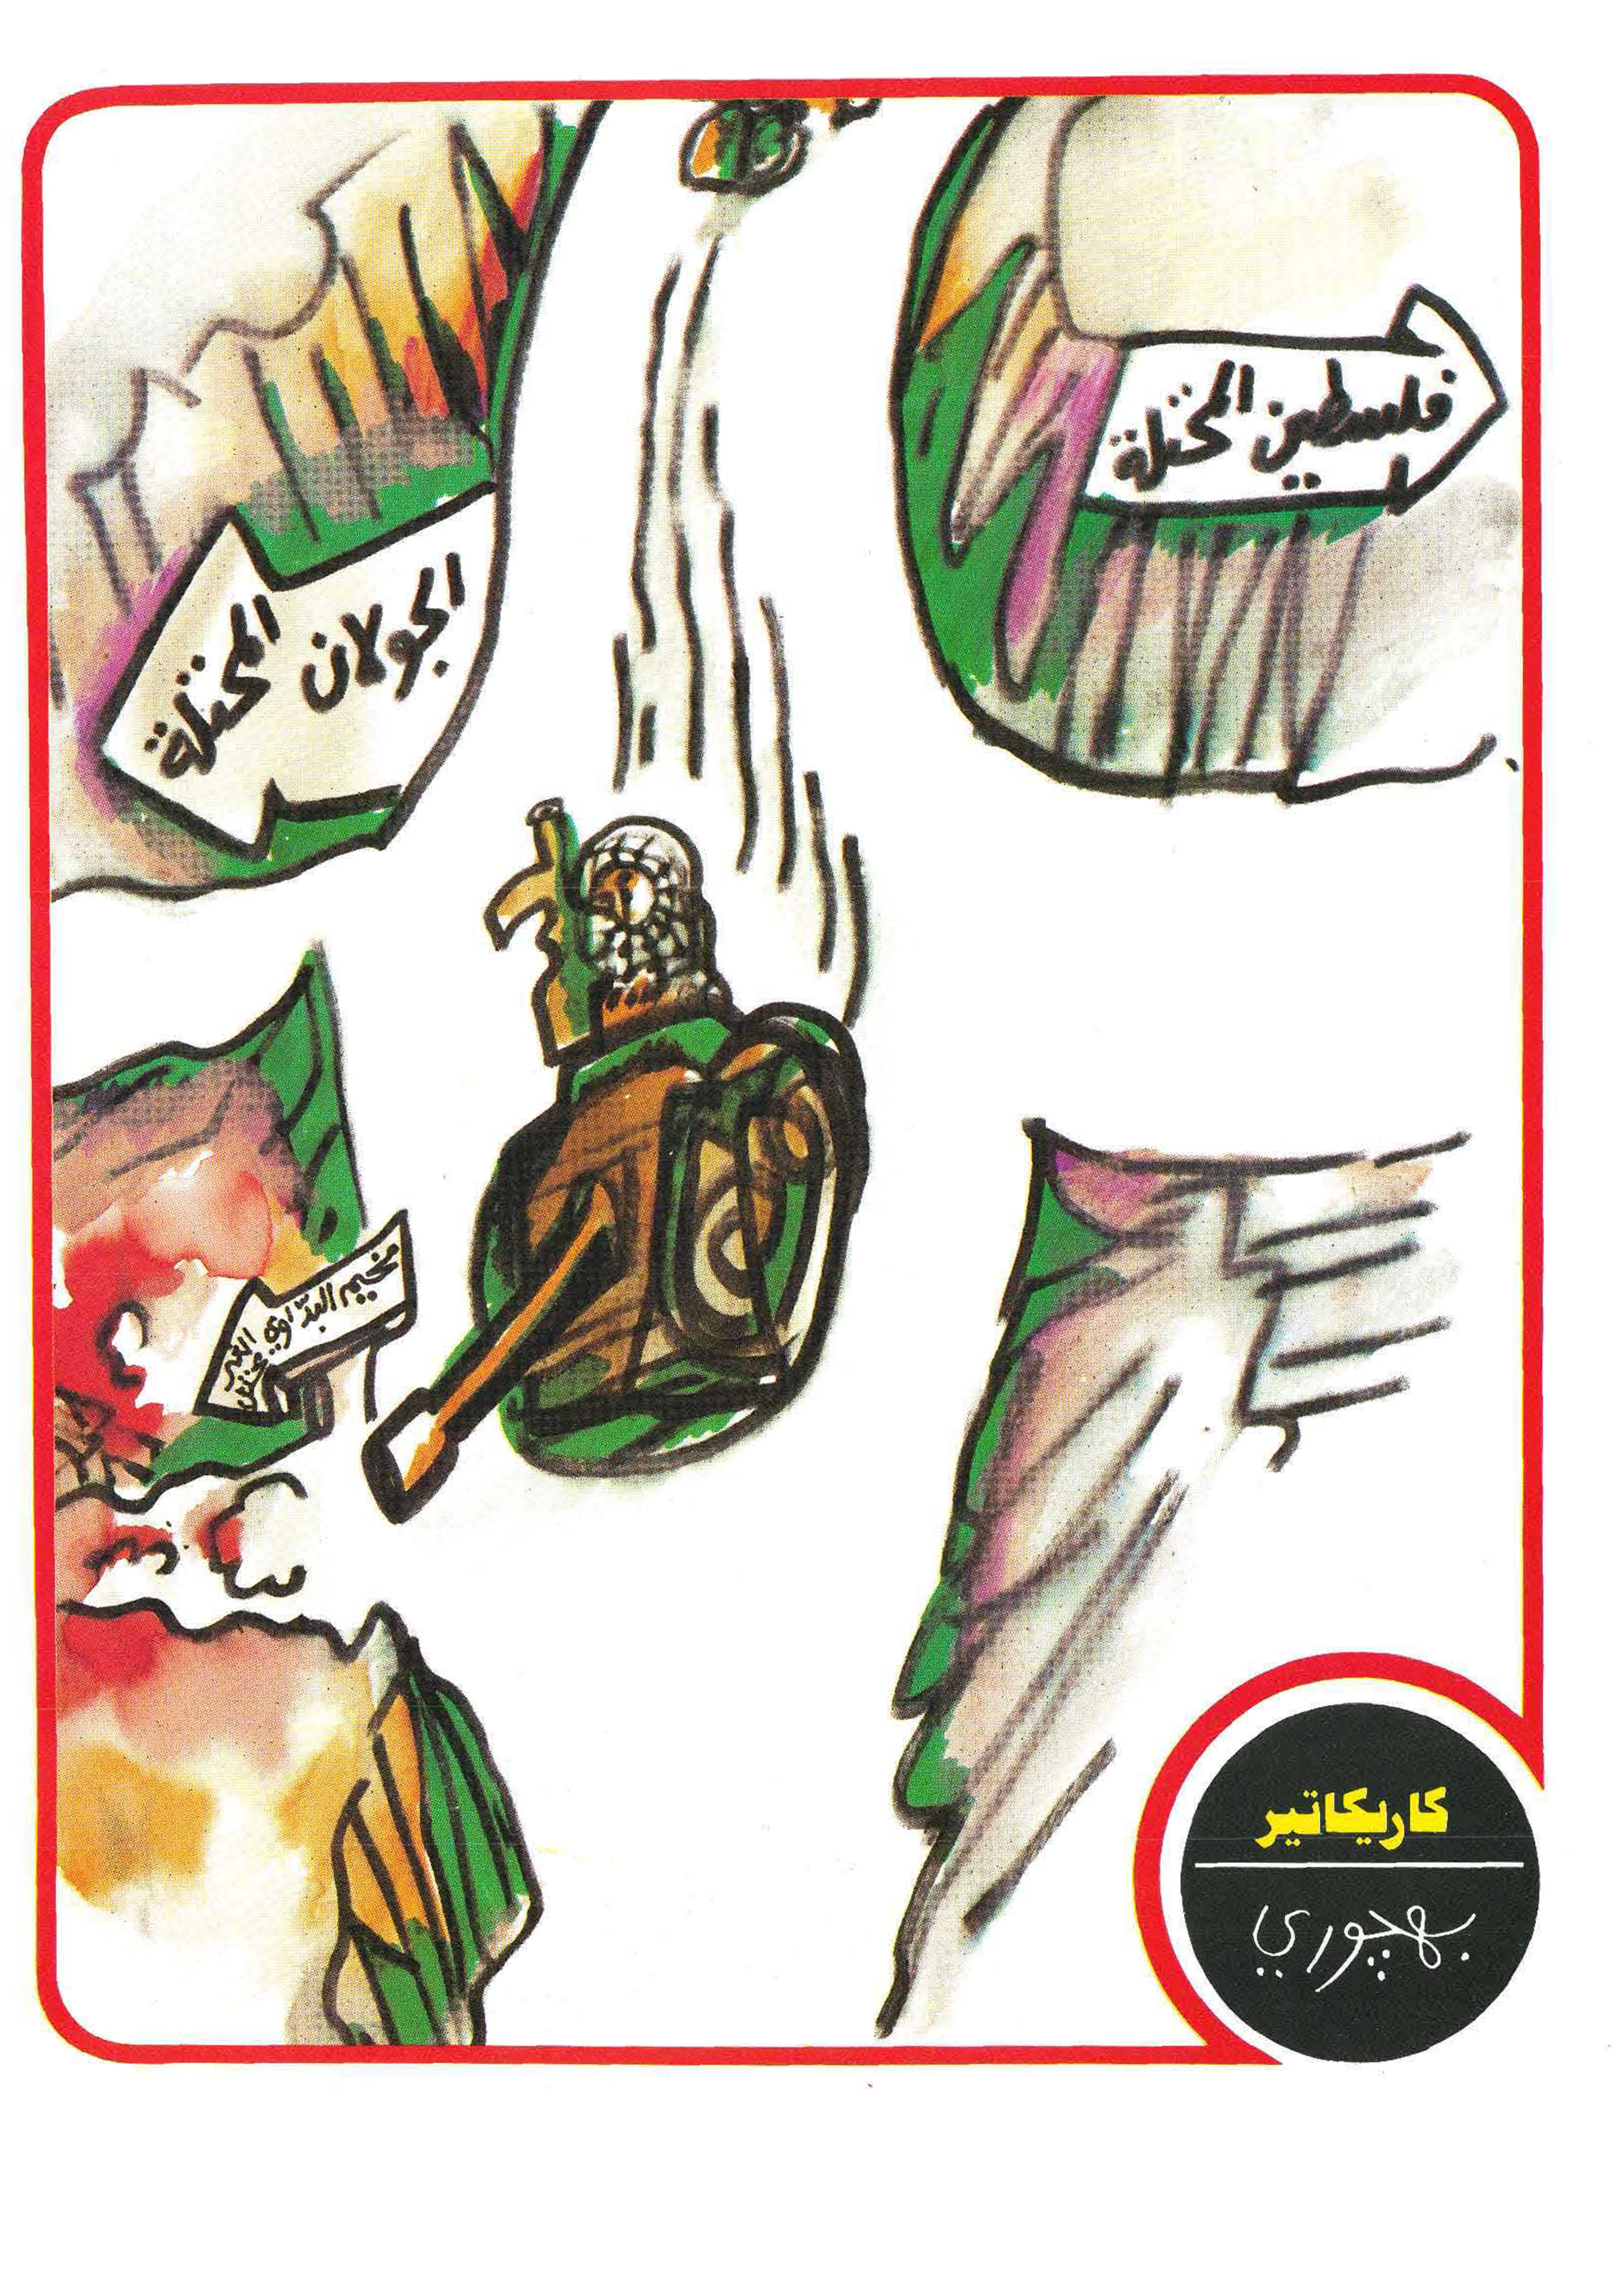 فلسطين المحتلة
الجولان
المحتلة
مخيم البدّاوي
كاريكاتير
بهجوري